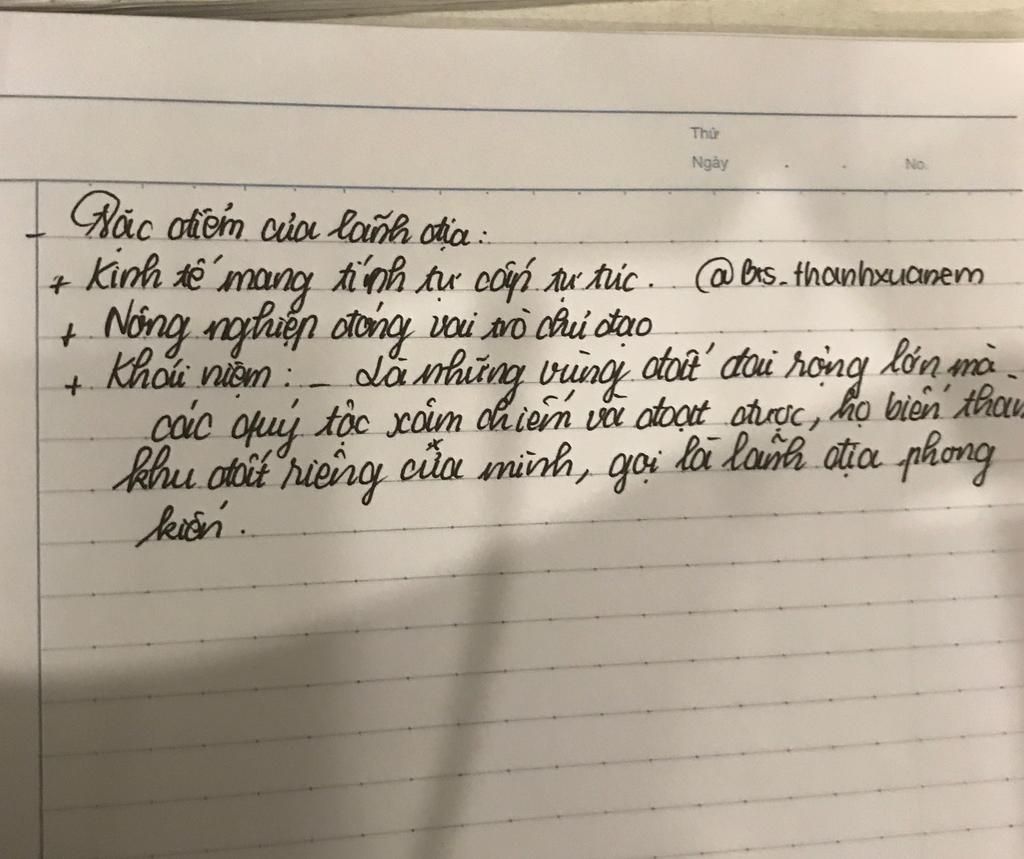 Thứ
Ngày . . No.
- Đặc điểm của lãnh địa:
+ Kinh tế mang tính tự cấp tự túc. @brs.thanhxuanem
+ Nông nghiệp đóng vai trò chủ đạo
+ Khái niệm: - Là những vùng đất đai rộng lớn mà
các quý tộc xâm chiếm và đoạt được, họ biến than
khu đất riêng của mình, gọi là lãnh địa phong
kiến.